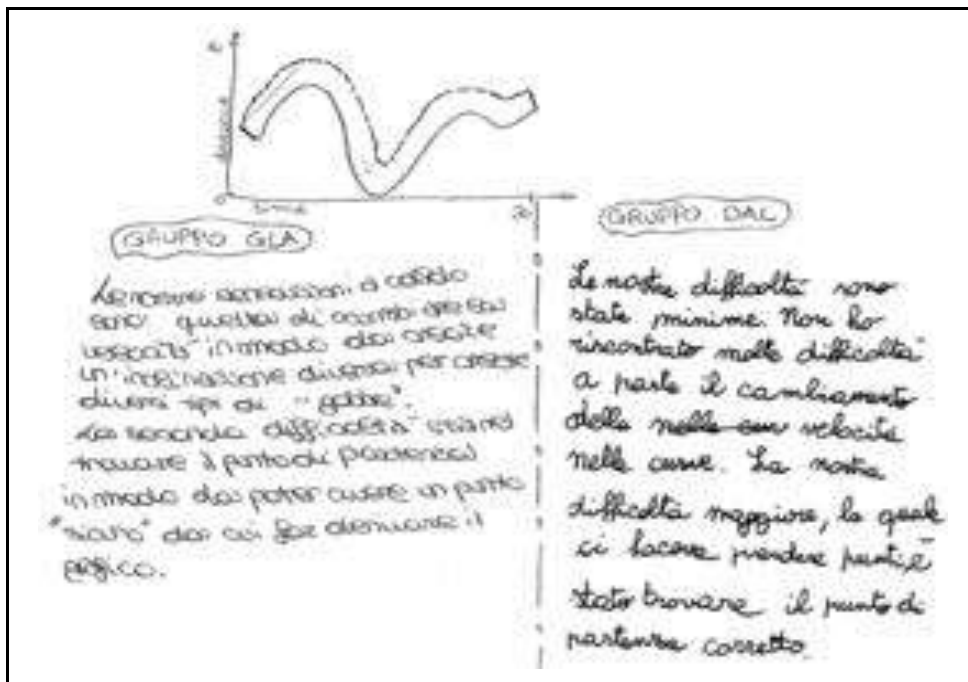 0
time
GRUPPO GLA
sono quella di
velocità" in modo da creare
un'inclinazione diversa per creare
diversi tipi di "gobbe".
La seconda difficoltà
trovare il punto di partenza
in modo da poter avere un punto
da cui far derivare il
grafico.
GRUPPO DAL
Le nostre difficoltà sono
state minime. Non ho
riscontrato molte difficoltà
a parte il cambiamento
della velocità
nelle curve. La nostra
difficoltà maggiore, la quale
ci faceva perdere punti, è
stato trovare il punto di
partenza corretto.